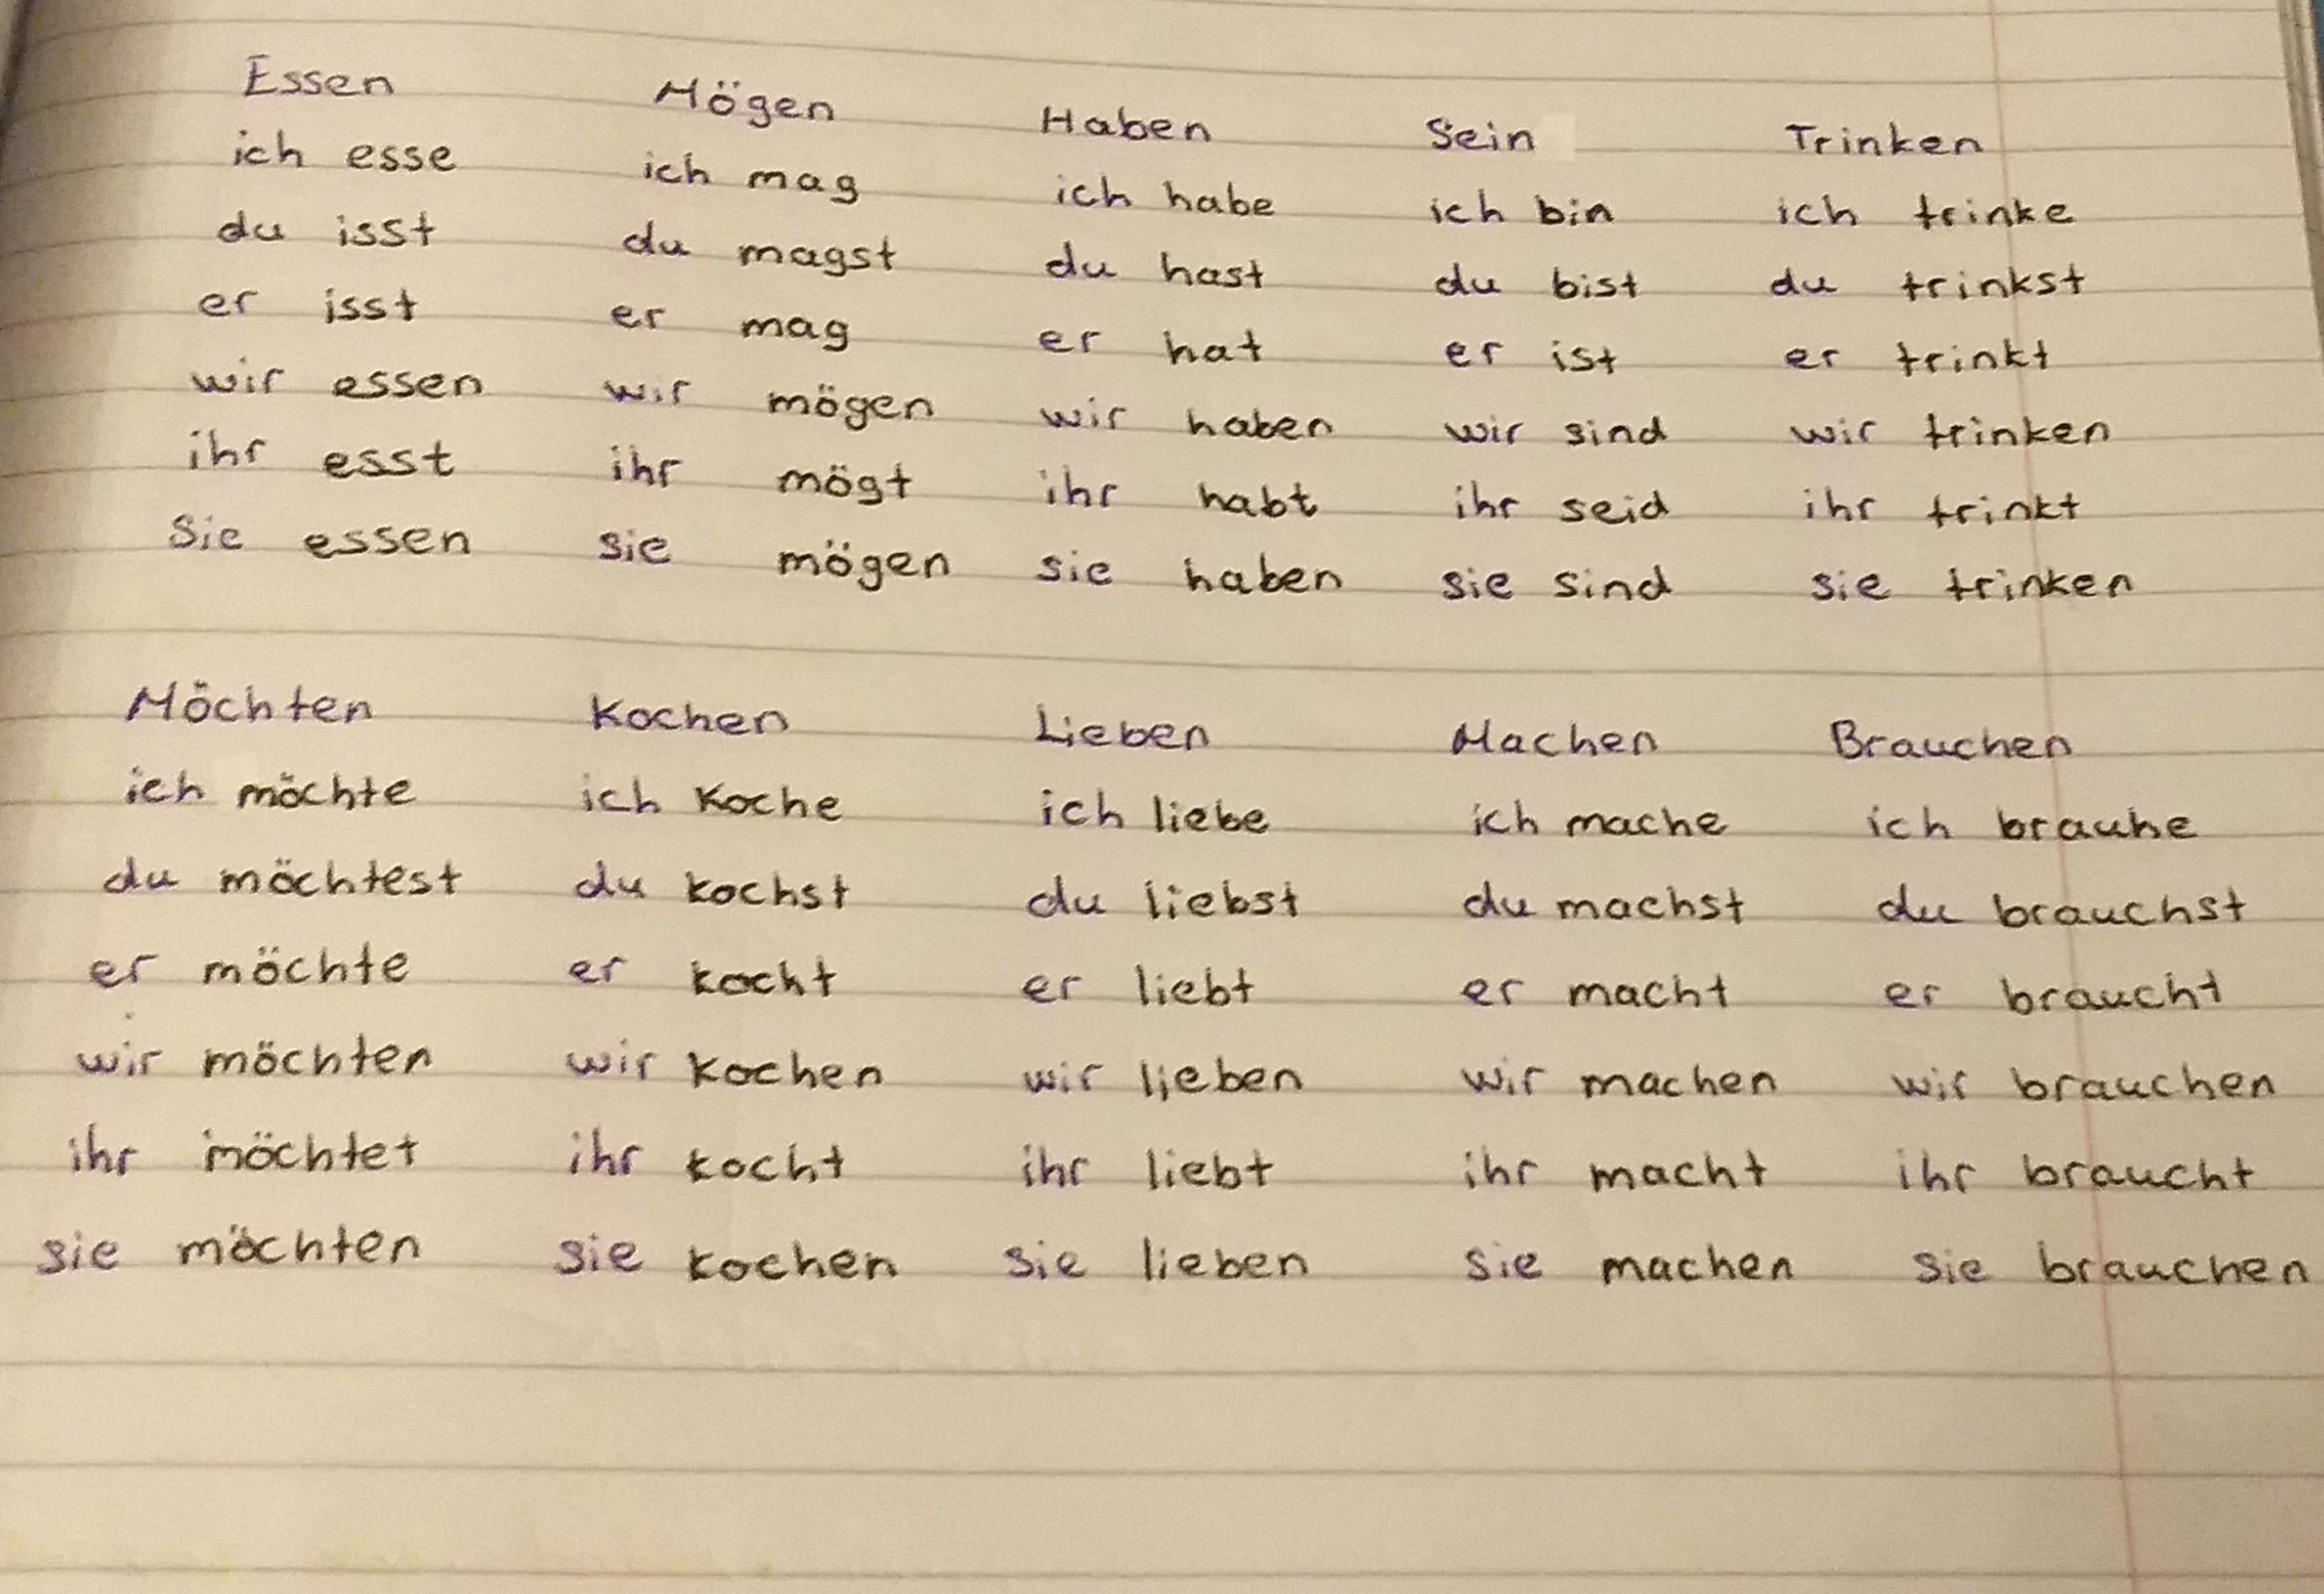 Essen Mögen Haben Sein Trinken
ich esse ich mag ich habe ich bin ich trinke
du isst du magst du hast du bist du trinkst
er isst er mag er hat er ist er trinkt
wir essen wir mögen wir haben wir sind wir trinken
ihr esst ihr mögt ihr habt ihr seid ihr trinkt
Sie essen sie mögen sie haben sie sind sie trinken
Möchten Kochen Lieben Machen Brauchen
ich möchte ich koche ich liebe ich mache ich brauhe
du möchtest du kochst du liebst du machst du brauchst
er möchte er kocht er liebt er macht er braucht
wir möchten wir kochen wir lieben wir machen wir brauchen
ihr möchtet ihr kocht ihr liebt ihr macht ihr braucht
sie möchten sie kochen sie lieben sie machen sie brauchen